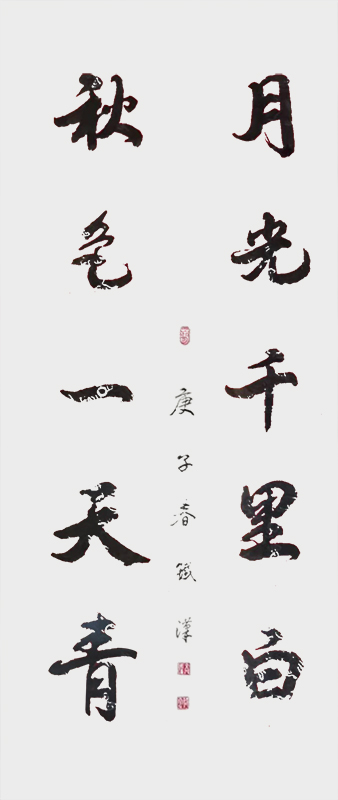 月光千里白
秋色一天青
庚子春铁汉